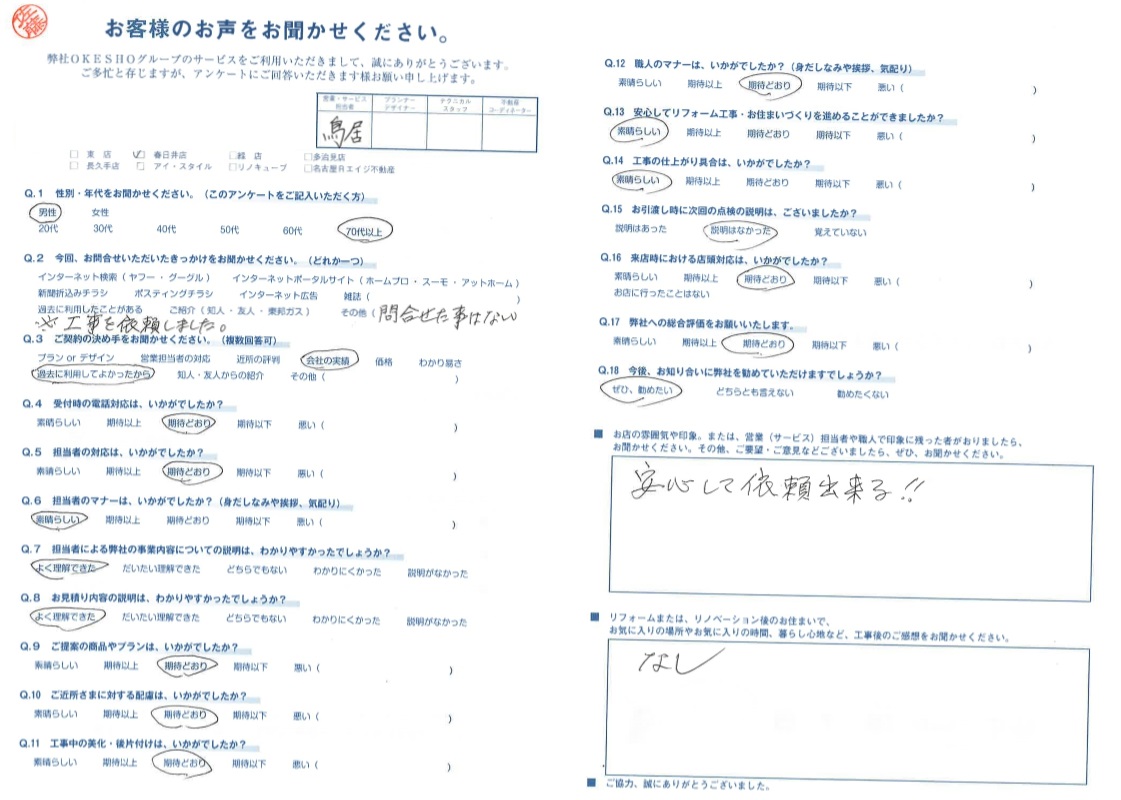 佐藤
お客様のお声をお聞かせください。
弊社OKESHOグループのサービスをご利用いただきまして、誠にありがとうございます。
ご多忙と存じますが、アンケートにご回答いただきます様お願い申し上げます。
営業・サービス担当者 プランナーデザイナー テクニカルスタッフ 不動産コーディネーター
鳥居
□ 東 店 ☑ 春日井店 □緑 店 □多治見店
□ 長久手店 □ アイ・スタイル □リノキューブ □名古屋Rエイジ不動産
Q.1 性別・年代をお聞かせください。（このアンケートをご記入いただく方）
男性 女性
20代 30代 40代 50代 60代 70代以上
Q.2 今回、お問合せいただいたきっかけをお聞かせください。（どれか一つ）
インターネット検索（ヤフー・グーグル） インターネットポータルサイト（ホームプロ・スーモ・アットホーム）
新聞折込みチラシ ポスティングチラシ インターネット広告 雑誌（ ）
過去に利用したことがある ご紹介（知人・友人・東邦ガス） その他（問合せた事はない
※工事を依頼しました。
Q.3 ご契約の決め手をお聞かせください。（複数回答可）
プラン or デザイン 営業担当者の対応 近所の評判 会社の実績 価格 わかり易さ
過去に利用してよかったから 知人・友人からの紹介 その他（ ）
Q.4 受付時の電話対応は、いかがでしたか？
素晴らしい 期待以上 期待どおり 期待以下 悪い（ ）
Q.5 担当者の対応は、いかがでしたか？
素晴らしい 期待以上 期待どおり 期待以下 悪い（ ）
Q.6 担当者のマナーは、いかがでしたか？（身だしなみや挨拶、気配り）
素晴らしい 期待以上 期待どおり 期待以下 悪い（ ）
Q.7 担当者による弊社の事業内容についての説明は、わかりやすかったでしょうか？
よく理解できた だいたい理解できた どちらでもない わかりにくかった 説明がなかった
Q.8 お見積り内容の説明は、わかりやすかったでしょうか？
よく理解できた だいたい理解できた どちらでもない わかりにくかった 説明がなかった
Q.9 ご提案の商品やプランは、いかがでしたか？
素晴らしい 期待以上 期待どおり 期待以下 悪い（ ）
Q.10 ご近所さまに対する配慮は、いかがでしたか？
素晴らしい 期待以上 期待どおり 期待以下 悪い（ ）
Q.11 工事中の美化・後片付けは、いかがでしたか？
素晴らしい 期待以上 期待どおり 期待以下 悪い（ ）
Q.12 職人のマナーは、いかがでしたか？（身だしなみや挨拶、気配り）
素晴らしい 期待以上 期待どおり 期待以下 悪い（ ）
Q.13 安心してリフォーム工事・お住まいづくりを進めることができましたか？
素晴らしい 期待以上 期待どおり 期待以下 悪い（ ）
Q.14 工事の仕上がり具合は、いかがでしたか？
素晴らしい 期待以上 期待どおり 期待以下 悪い（ ）
Q.15 お引渡し時に次回の点検の説明は、ございましたか？
説明はあった 説明はなかった 覚えていない
Q.16 来店時における店頭対応は、いかがでしたか？
素晴らしい 期待以上 期待どおり 期待以下 悪い（ ）
お店に行ったことはない
Q.17 弊社への総合評価をお願いいたします。
素晴らしい 期待以上 期待どおり 期待以下 悪い（ ）
Q.18 今後、お知り合いに弊社を勧めていただけますでしょうか？
ぜひ、勧めたい どちらとも言えない 勧めたくない
■ お店の雰囲気や印象。または、営業（サービス）担当者や職人で印象に残った者がおりましたら、
お聞かせください。その他、ご要望・ご意見などございましたら、ぜひ、お聞かせください。
安心して依頼出来る!!
■ リフォームまたは、リノベーション後のお住まいで、
お気に入りの場所やお気に入りの時間、暮らし心地など、工事後のご感想をお聞かせください。
なし
■ ご協力、誠にありがとうございました。